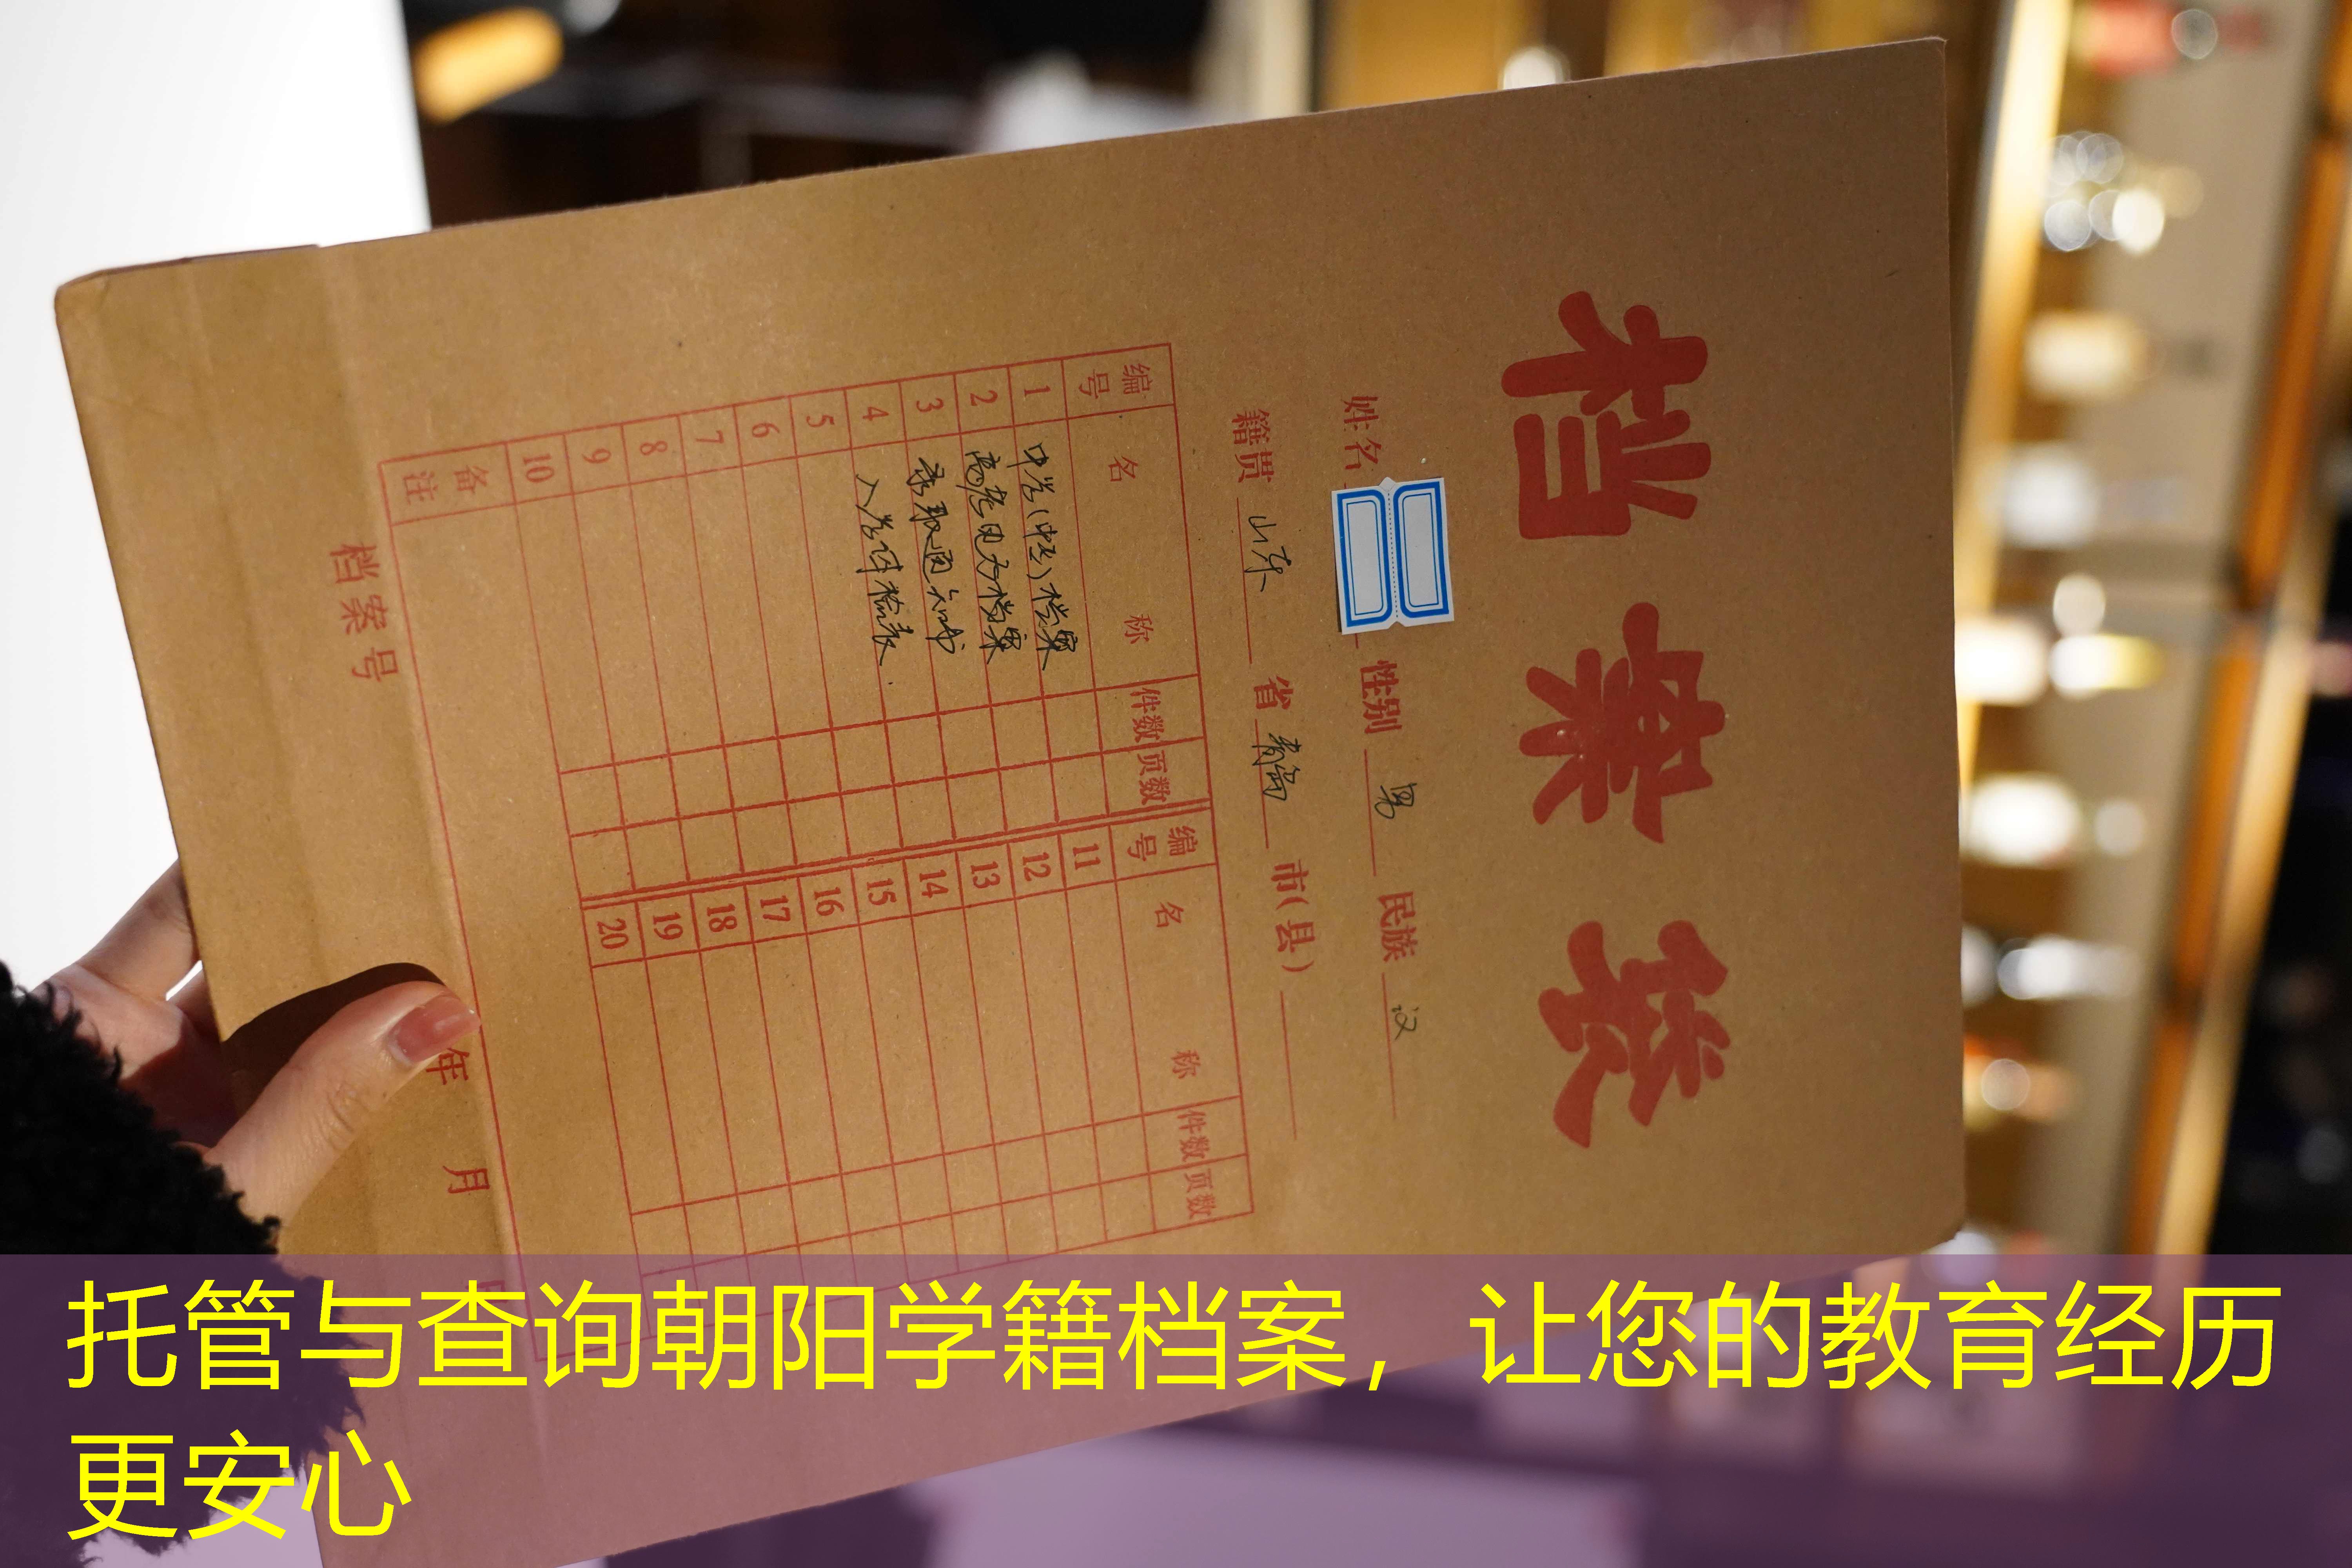 档案袋
姓名 性别 男 民族 汉
籍贯 山东 省 青岛 市(县)
编号 名称 件数 页数 编号 名称 件数 页数
1 中学(中专)档案 11
2 高考电子档案 12
3 录取通知书 13
4 入学体检表 14
5 15
6 16
7 17
8 18
9 19
10 20
备注
档案号 年 月 日
托管与查询朝阳学籍档案，让您的教育经历
更安心